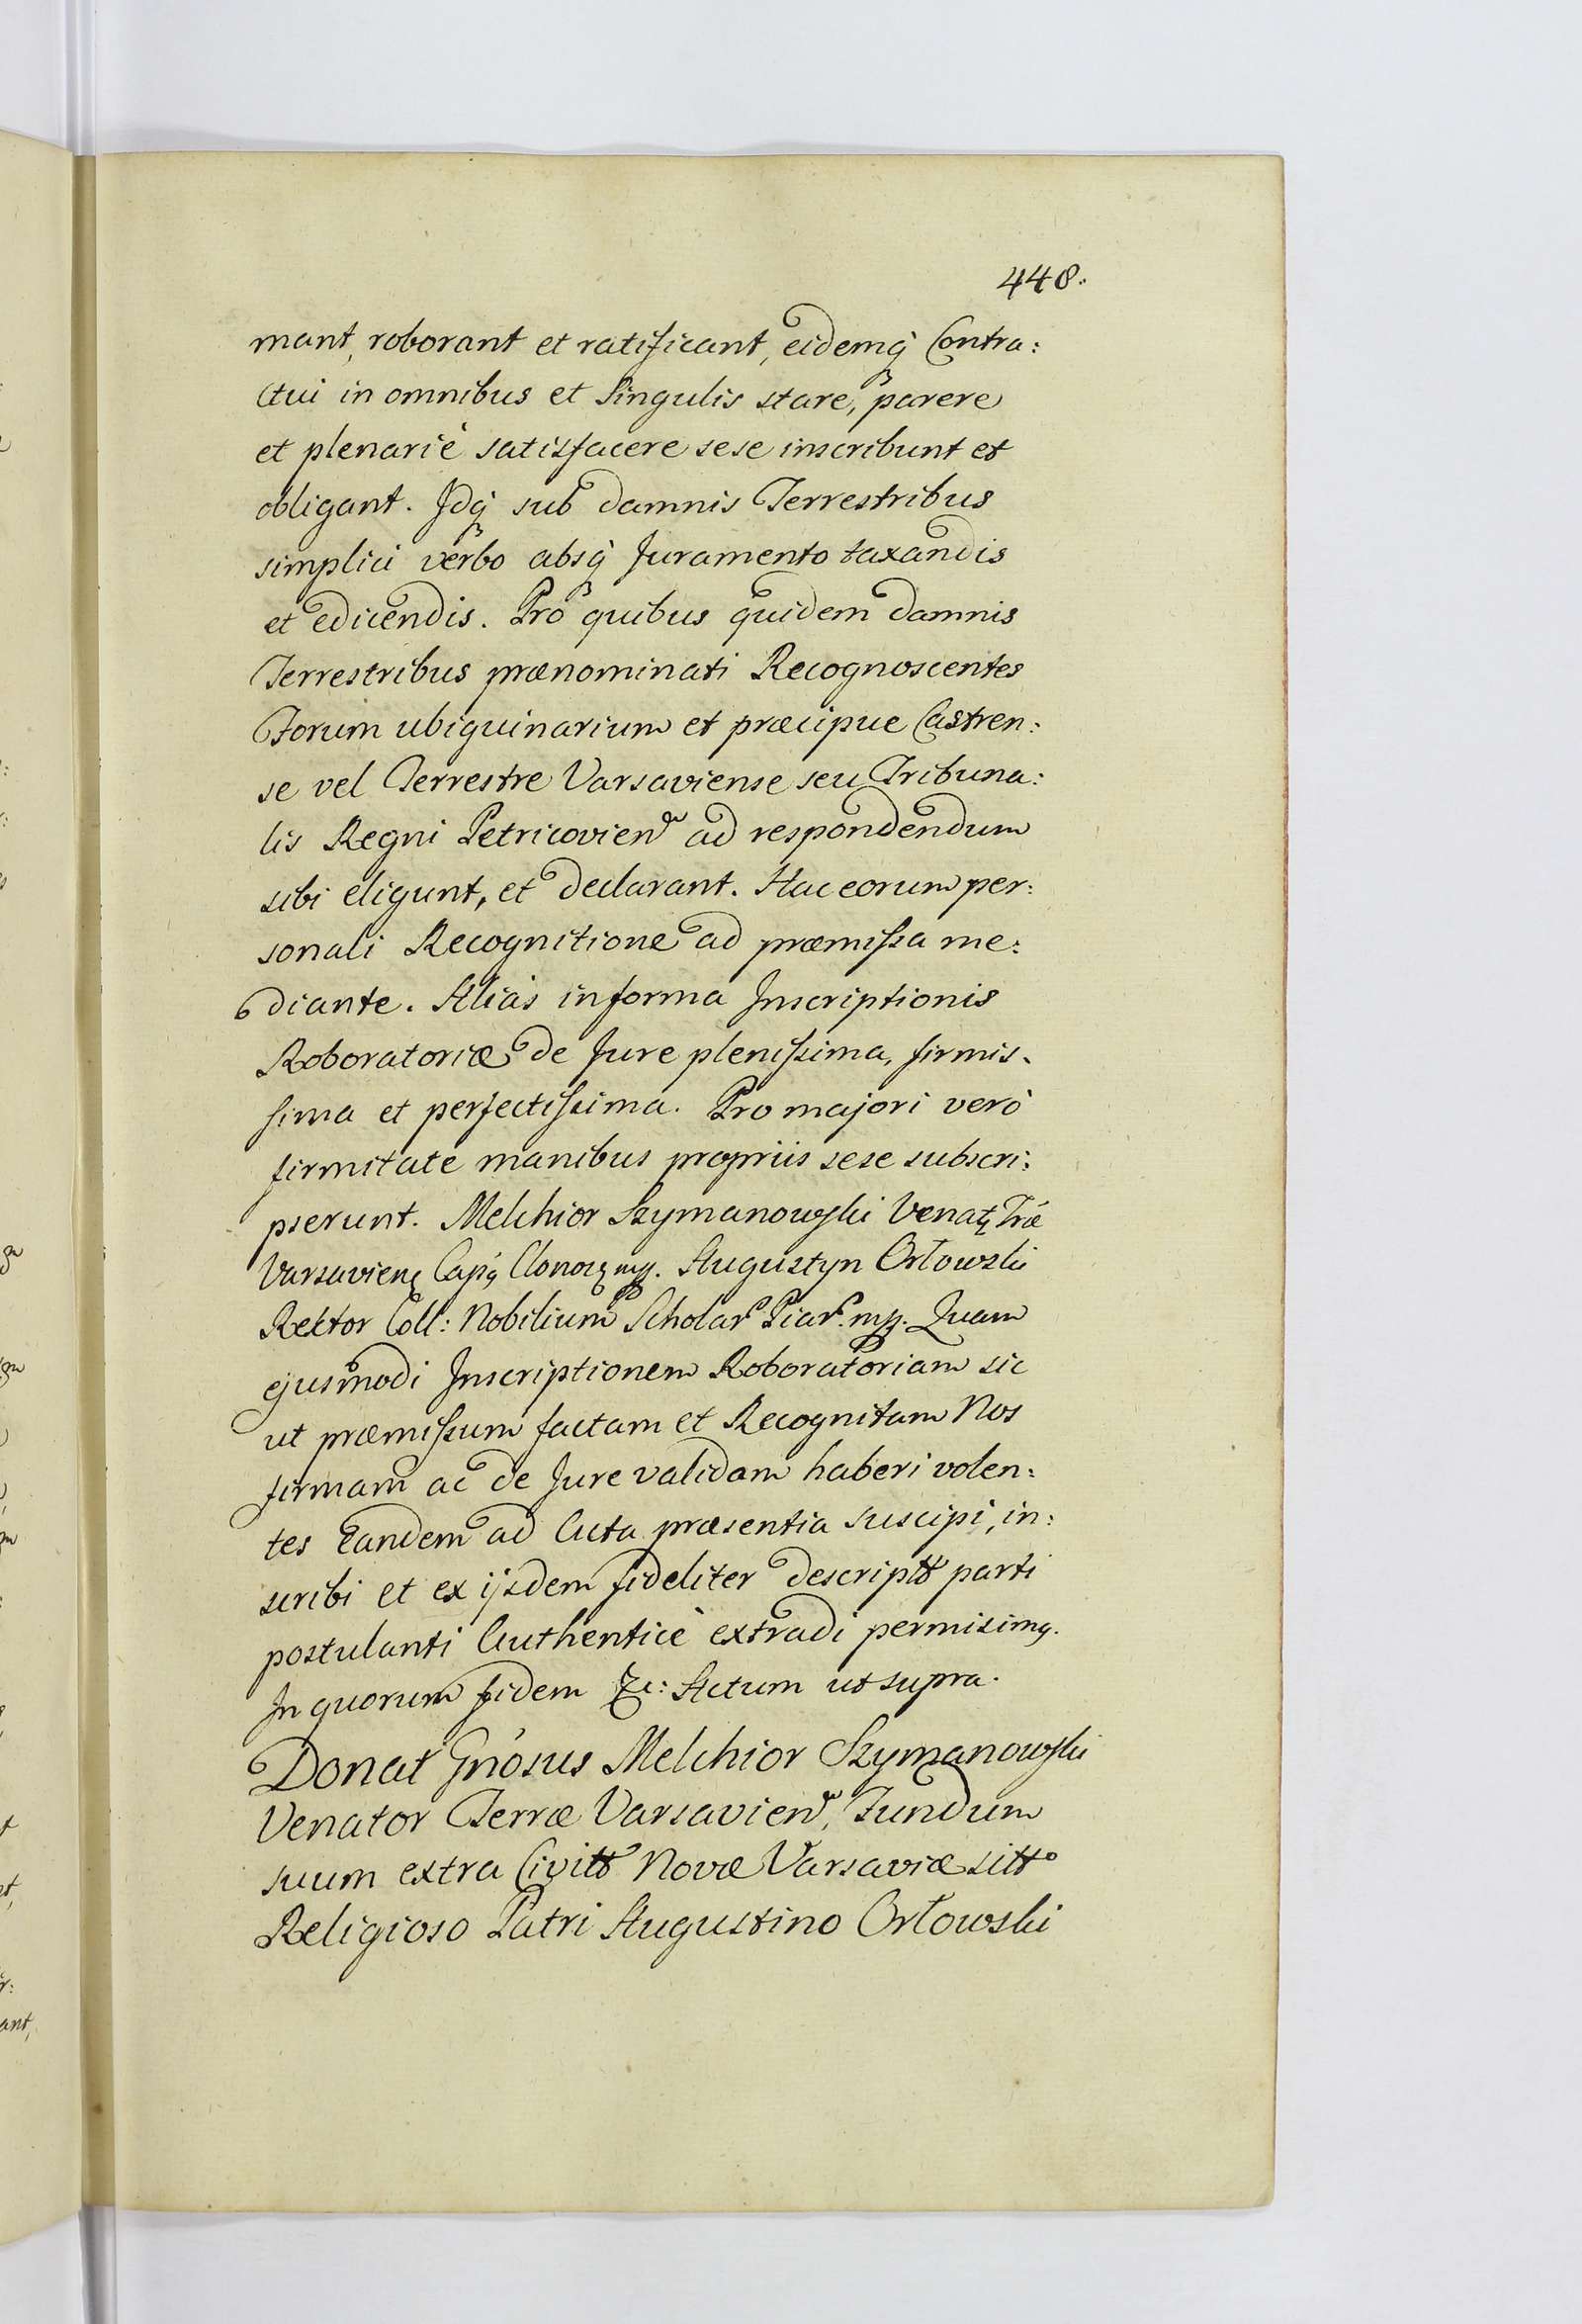 448.
mant, roborant et ratificant, eidemq3 Contra:
ctui in omnibus et Singulis stare, parere
et plenariè satisfacere sese inscribunt et
obligant. Idq3 sub damnis Terrestribus
simplici verbo absq3 Juramento taxandis
et edicendis. Pro quibus quidem damnis
Terrestribus prænominati Recognoscentes
Forum ubiquinarium et præcipue Castren:
se vel Terrestre Varsaviense seu Tribuna:
lis Regni Petricovien ad respondendum
sibi eligunt, et declarant. Hac eorum per:
sonali Recognitione ad præmissa me:
diante. Aliàs in forma Inscriptionis
Roboratoriæ de Jure plenissima, firmis:
sima et perfectissima. Pro majori verò
firmitate manibus propriis sese subscri:
pserunt. Melchior Szymanowski Venat Træ
Varsavien Cap mp. Augustyn Orłowski
Rektor Coll: Nobilium Scholar Piar. mp. Quam
ejusmodi Inscriptionem Roboratoriam sic
ut præmissum factam et Recognitam Nos
firmam ac de Jure validam haberi volen:
tes Eandem ad Acta præsentia suscipi, in:
scribi et ex ijsdem fideliter descriptt parti
postulanti Authenticè extradi permisimq.
In quorum fidem &c: Actum ut supra.
Donat Gnósus Melchior Szymanowski
Venator Terræ Varsavien, Fundum
suum extra Civitt Novæ Varsaviæ sitt
Religioso Patri Augustino Orłowski